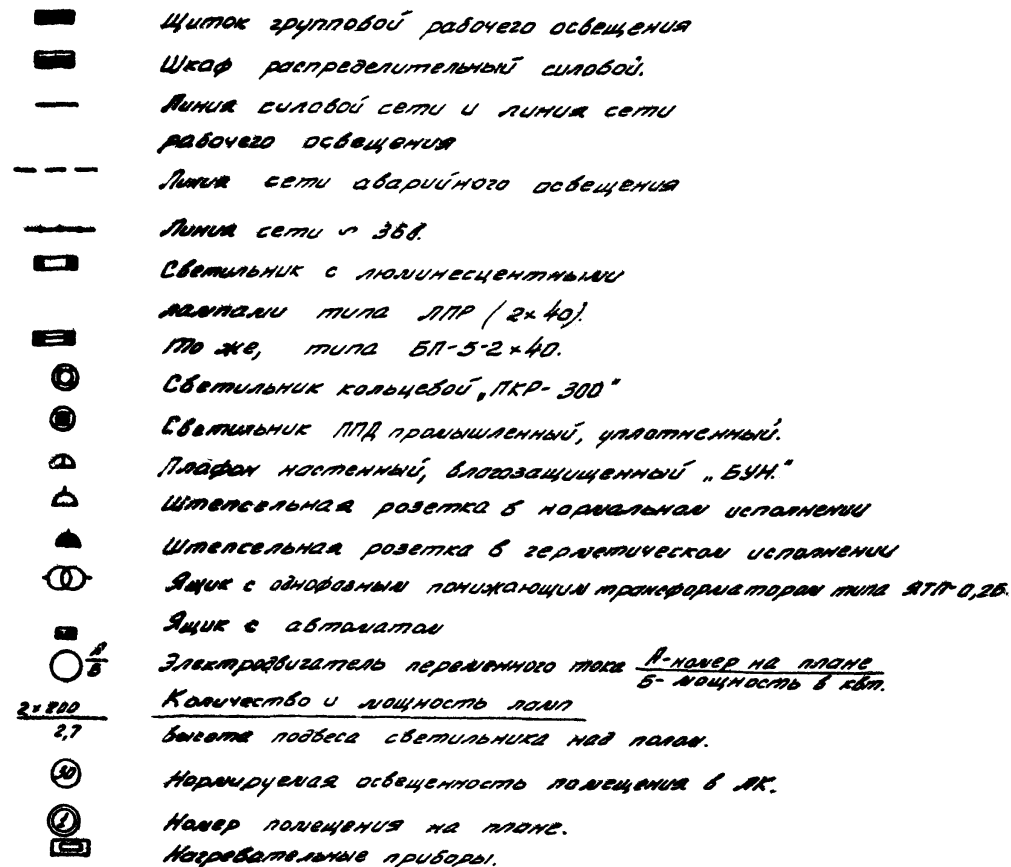 Щиток групповой рабочего освещения
Шкаф распределительный силовой.
Линия силовой сети и линия сети
рабочего освещения
Линия сети аварийного освещения
Линия сети ~ 36в.
Светильник с люминесцентными
лампами типа ЛПР (2×40).
То же, типа БЛ-5-2×40.
Светильник кольцевой „ПКР-300"
Светильник ППД промышленный, уплотненный.
Плафон настенный, влагозащищенный „БУН."
Штепсельная розетка в нормальном исполнении
Штепсельная розетка в герметическом исполнении
Ящик с однофазным понижающим трансформатором типа ЯТП-0,25.
Ящик с автоматом
А
Б Электродвигатель переменного тока А-номер на плане
Б- мощность в квт.
2×200 Количество и мощность ламп
2,7 Высота подвеса светильника над полом.
30 Нормируемая освещенность помещения в лк.
1 Номер помещения на плане.
Нагревательные приборы.